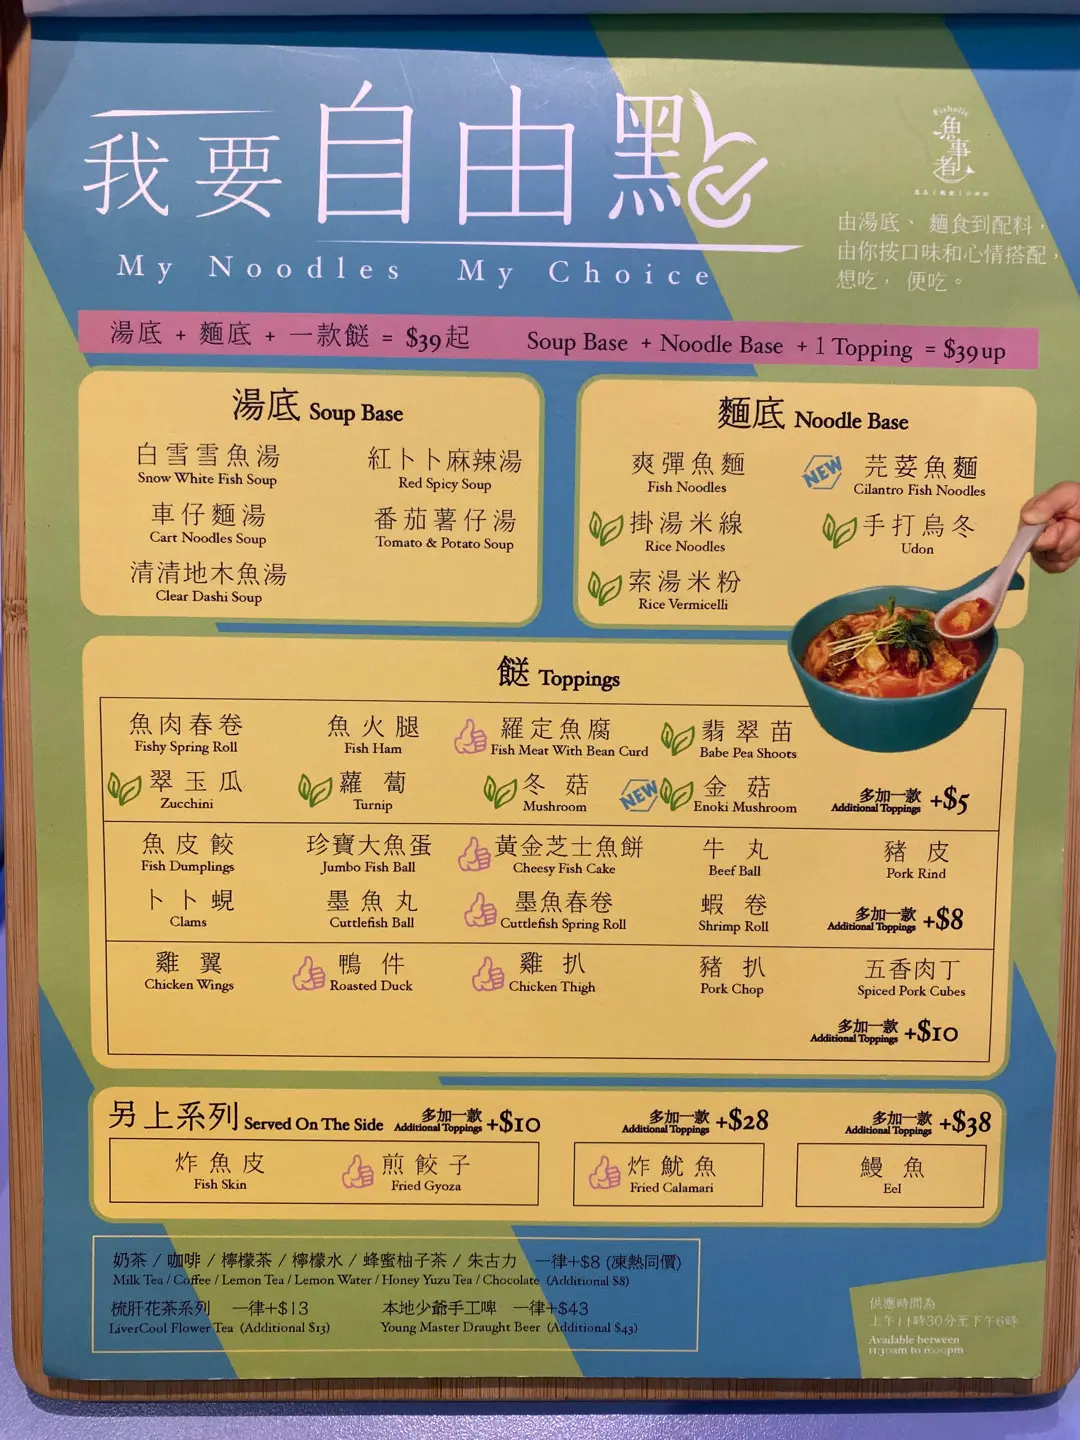 我要自由點
My Noodles My Choice
Fisholic
魚事者
由湯底、麵食到配料，
由你按口味和心情搭配，
想吃，便吃。
湯底 + 麵底 + 一款餸 = $39起 Soup Base + Noodle Base + 1 Topping = $39up
湯底 Soup Base
白雪雪魚湯 紅卜卜麻辣湯
Snow White Fish Soup Red Spicy Soup
車仔麵湯 番茄薯仔湯
Cart Noodles Soup Tomato & Potato Soup
清清地木魚湯
Clear Dashi Soup
麵底 Noodle Base
爽彈魚麵 NEW 芫荽魚麵
Fish Noodles Cilantro Fish Noodles
掛湯米線 手打烏冬
Rice Noodles Udon
索湯米粉
Rice Vermicelli
餸 Toppings
魚肉春卷 魚火腿 羅定魚腐 翡翠苗
Fishy Spring Roll Fish Ham Fish Meat With Bean Curd Babe Pea Shoots
翠玉瓜 蘿蔔 冬菇 NEW 金菇 多加一款
Zucchini Turnip Mushroom Enoki Mushroom Additional Toppings +$5
魚皮餃 珍寶大魚蛋 黃金芝士魚餅 牛丸 豬皮
Fish Dumplings Jumbo Fish Ball Cheesy Fish Cake Beef Ball Pork Rind
卜卜蜆 墨魚丸 墨魚春卷 蝦卷 多加一款
Clams Cuttlefish Ball Cuttlefish Spring Roll Shrimp Roll Additional Toppings +$8
雞翼 鴨件 雞扒 豬扒 五香肉丁
Chicken Wings Roasted Duck Chicken Thigh Pork Chop Spiced Pork Cubes
多加一款
Additional Toppings +$10
另上系列 Served On The Side 多加一款 Additional Toppings +$10 多加一款 Additional Toppings +$28 多加一款 Additional Toppings +$38
炸魚皮 煎餃子 炸魷魚 鰻魚
Fish Skin Fried Gyoza Fried Calamari Eel
奶茶 / 咖啡 / 檸檬茶 / 檸檬水 / 蜂蜜柚子茶 / 朱古力 一律+$8 (凍熱同價)
Milk Tea / Coffee / Lemon Tea / Lemon Water / Honey Yuzu Tea / Chocolate (Additional $8)
梳肝花茶系列 一律+$13 本地少爺手工啤 一律+$43
LiverCool Flower Tea (Additional $13) Young Master Draught Beer (Additional $43)
供應時間為
上午11時30分至下午6時
Available between
11:30am to 6:00pm